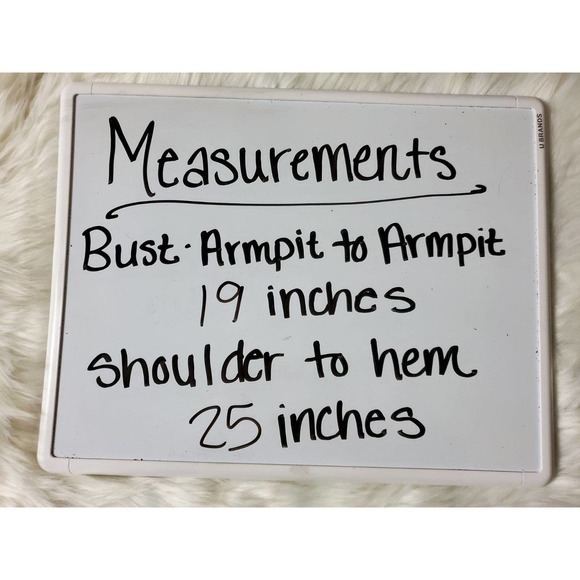 Measurements
Bust · Armpit to Armpit
19 inches
Shoulder to hem
25 inches
U BRANDS